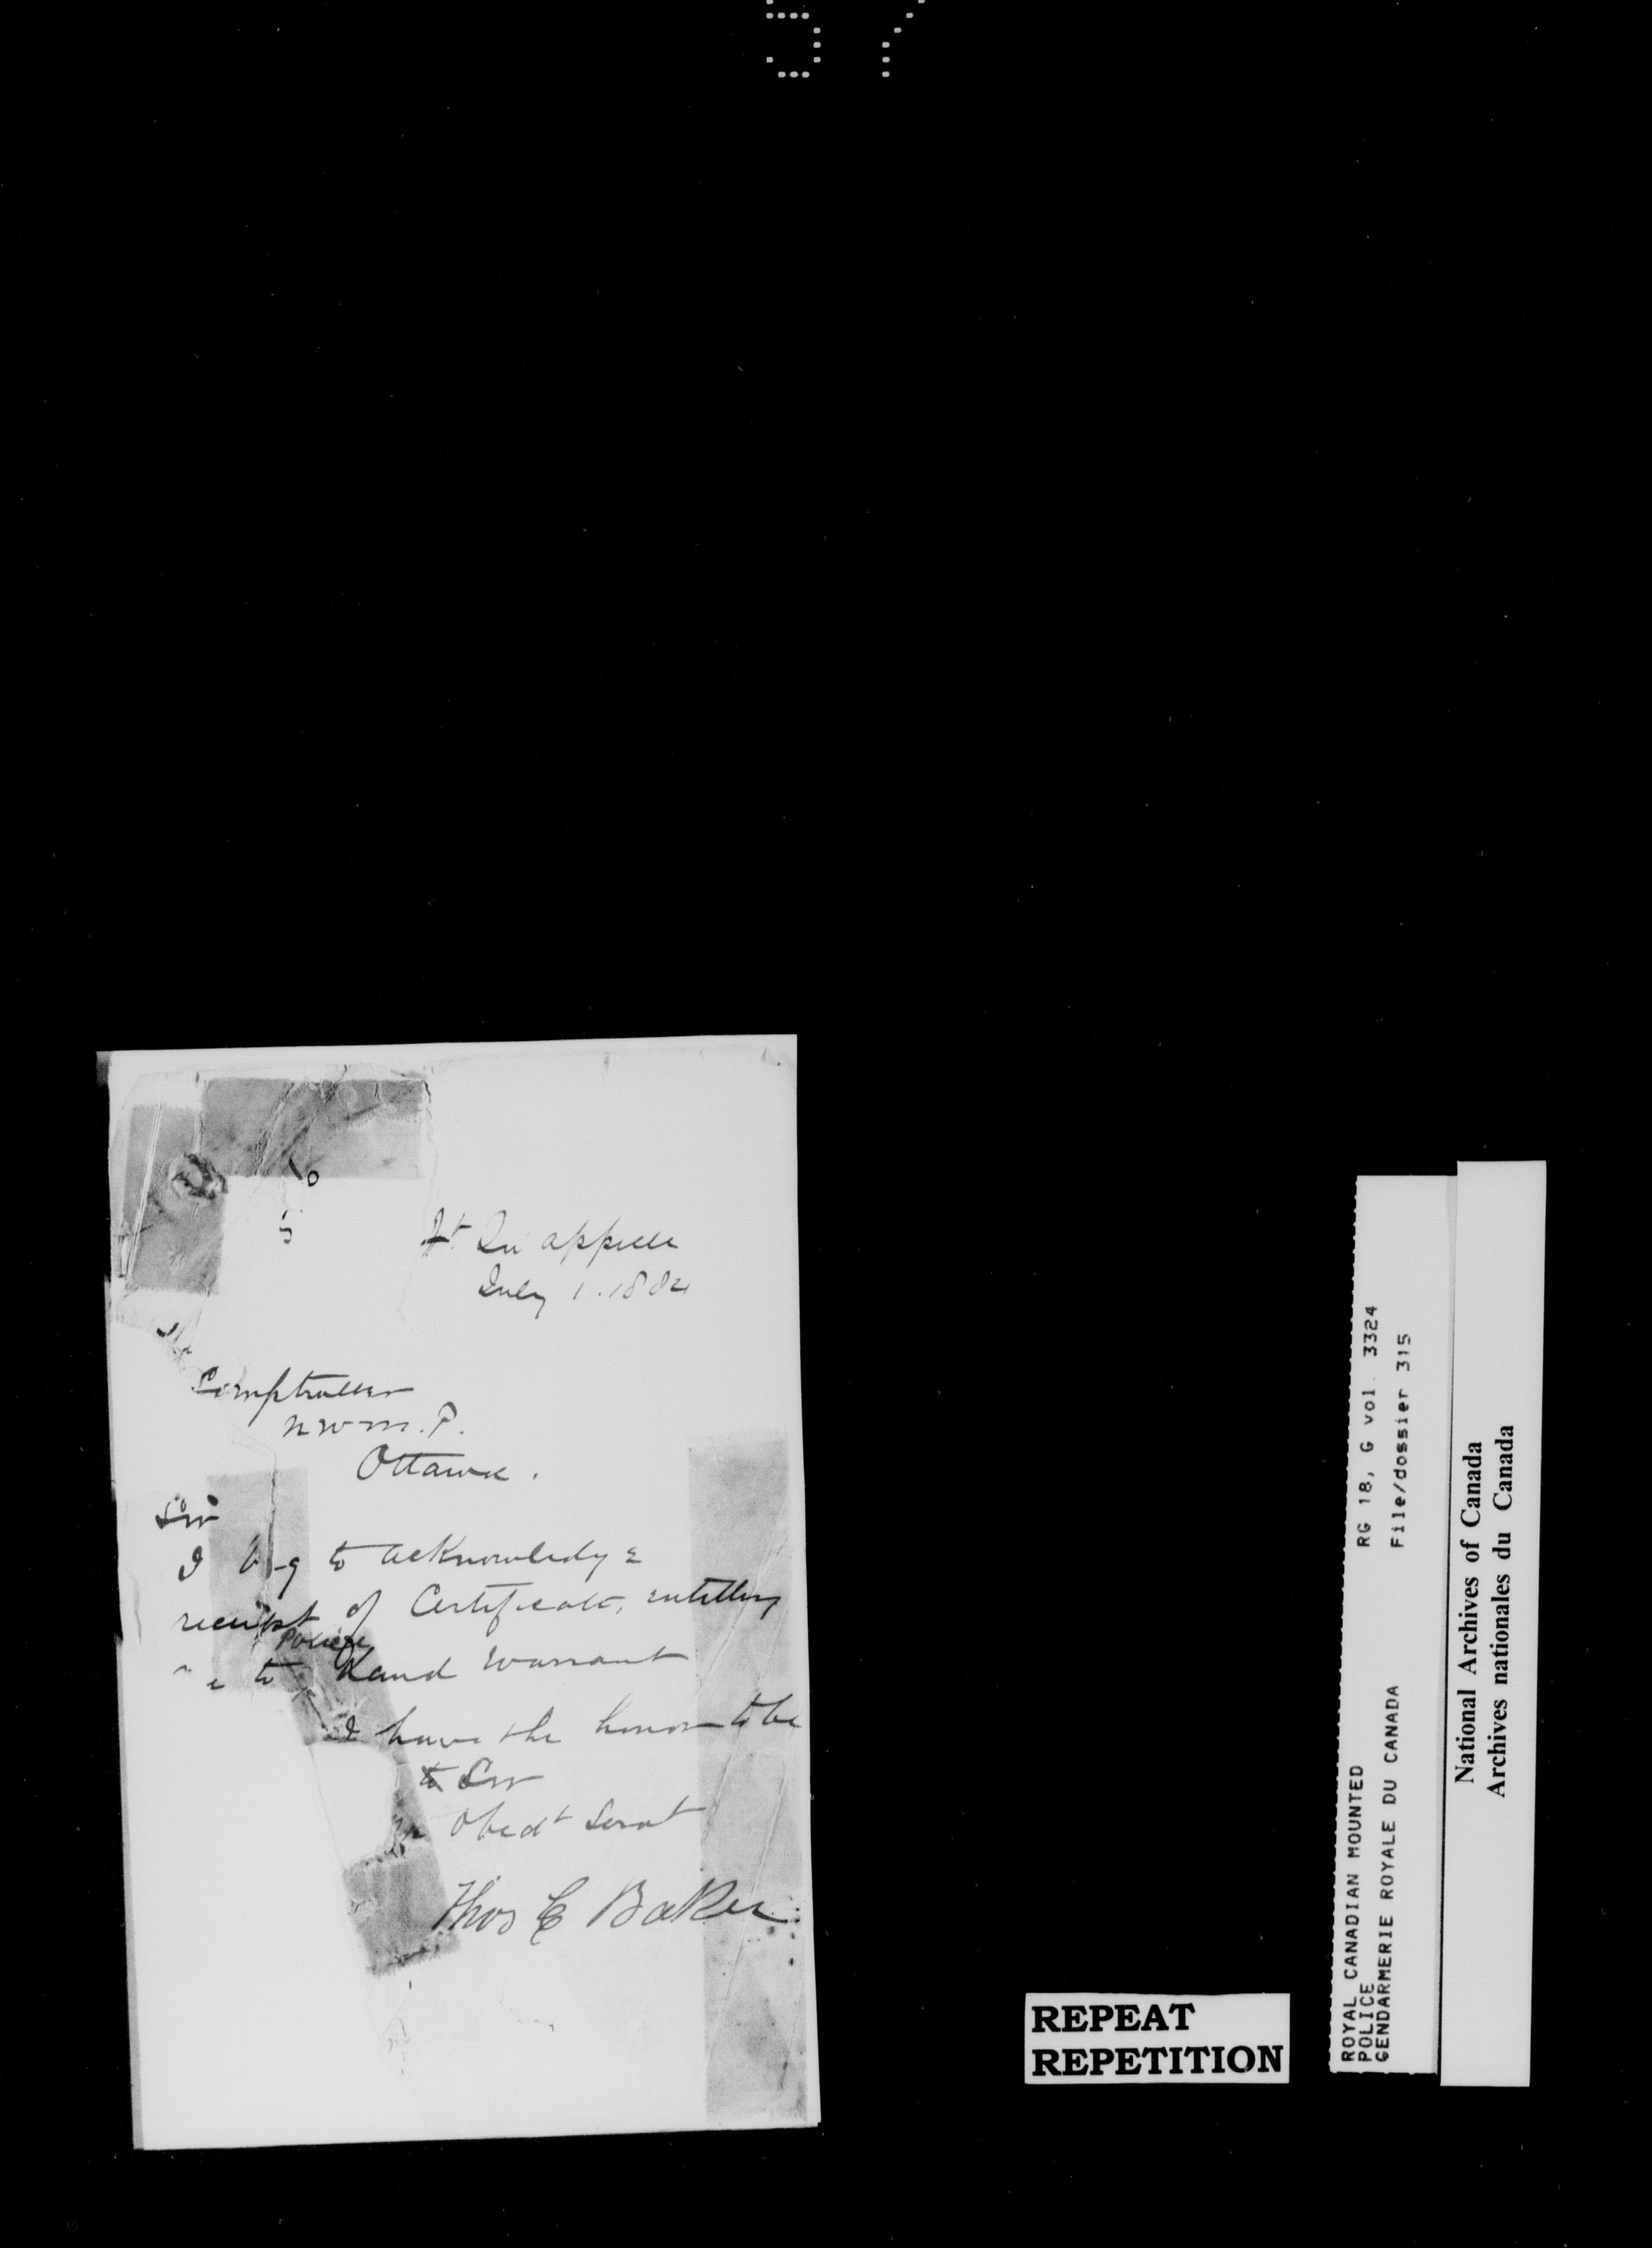 57
Ft. Qu'appelle
July 1. 1884
Comptroller
N W M. P.
Ottawa.
Sir
I beg to acknowledge
receipt of Certificate, entitling
Police
me to Land Warrant
I have the honor to be
Sir
Obedt Servt
Thos E Baker
REPEAT
REPETITION
ROYAL CANADIAN MOUNTED
POLICE
GENDARMERIE ROYALE DU CANADA
RG 18, G vol. 3324
File/dossier 315
National Archives of Canada
Archives nationales du Canada